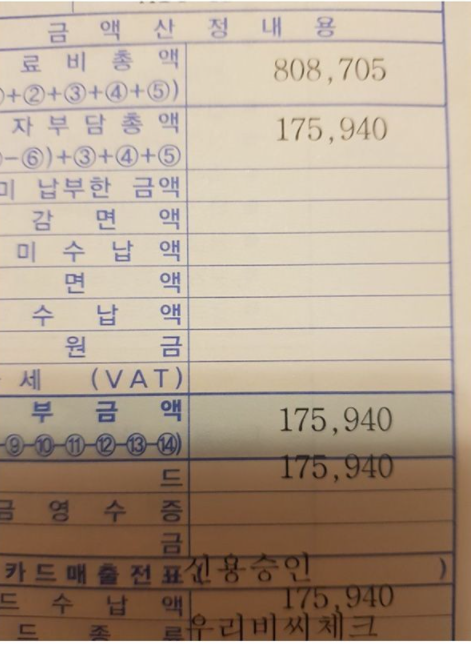 금액산정내용
료비총액 808,705
+②+③+④+⑤)
자부담총액 175,940
-⑥)+③+④+⑤
미 납부한 금액
감면액
미수납액
면액
수납액
원금
세 (VAT)
부금액 175,940
⑨-⑩-⑪-⑫-⑬-⑭)
드 175,940
금영수증
금
카드매출전표(신용승인 )
드수납액 175,940
드종류 우리비씨체크